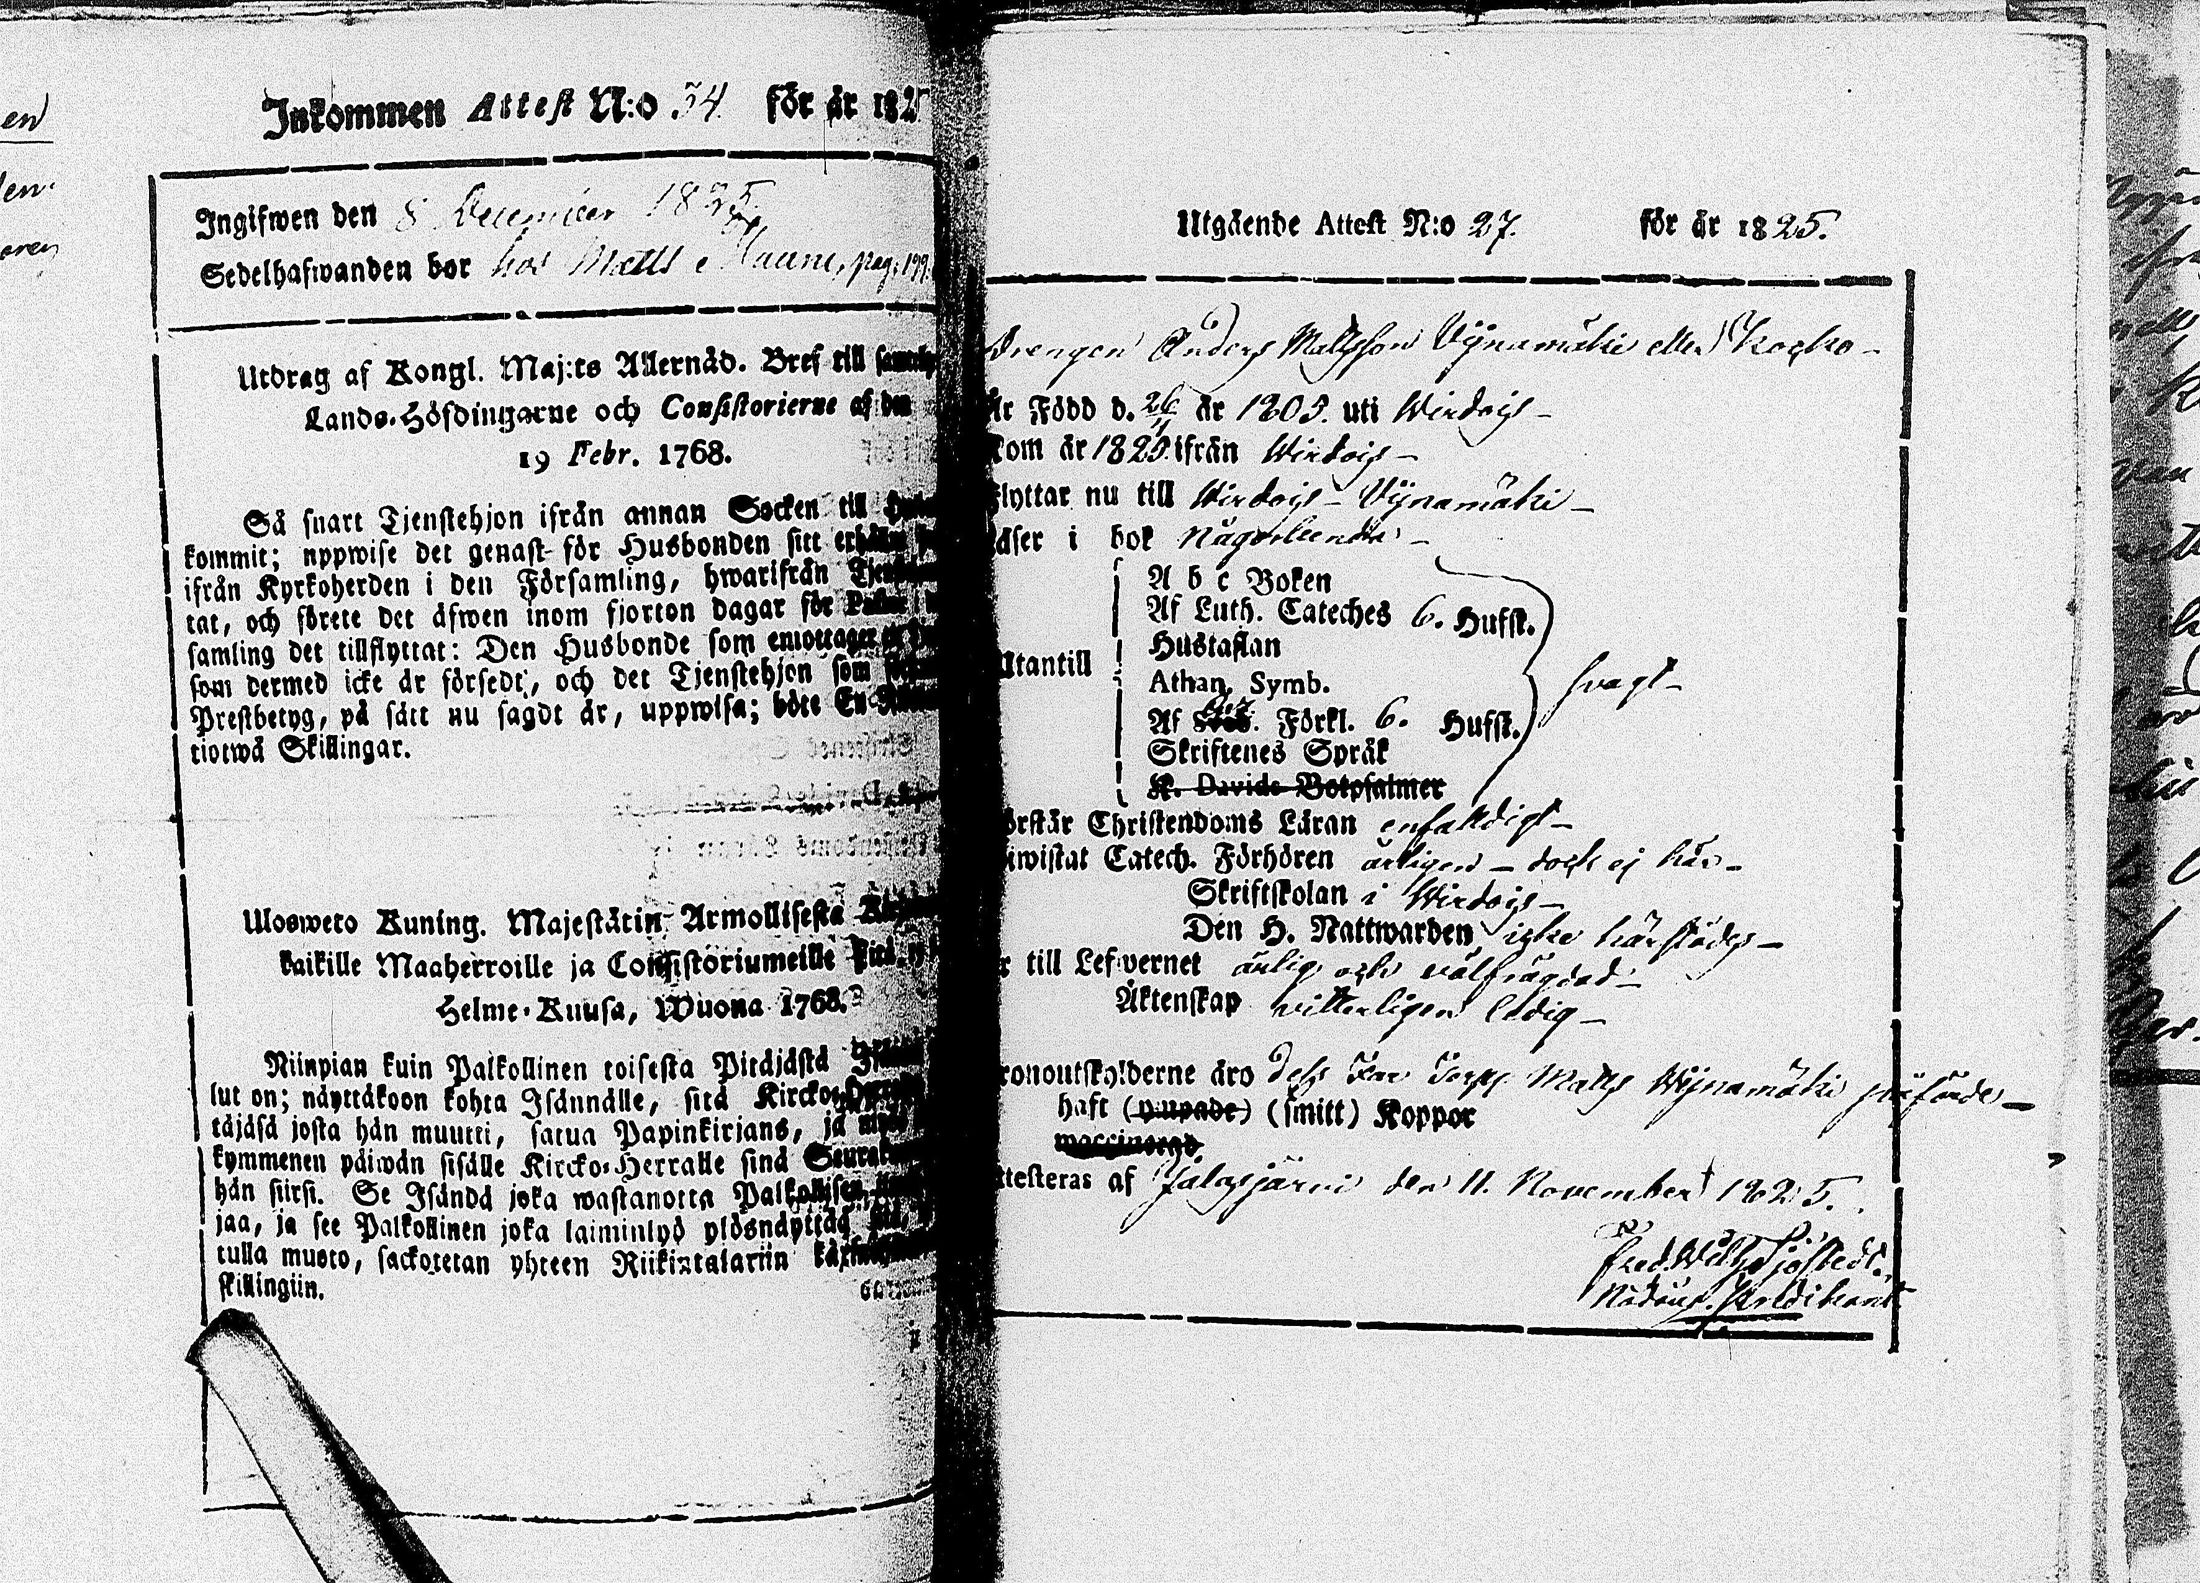 Inkommen Attest N:o 34. för år 1825
Ingifwen den 8 December 1825.
Sedelhafwanden bor hos Matts Haune, pag. 199.
Utdrag af Kongl. Maj:ts Allernåd. Bref till
Lands-Höfdingarne och Consistorierne af den
19 Febr. 1768.
Så snart Tjenstehjon ifrån annan Socken till
kommit; uppwise det genast för Husbonden sitt
ifrån Kyrkoherden i den Församling, hwarifrån
tat, och förete det äfwen inom fjorton dagar för
samling det tillflyttat: Den Husbonde som emottager
som dermed icke är försedt, och det Tjenstehjon som
Prestbetyg, på sätt nu sagdt är, uppwisa; böte En
tiotwå Skillingar.
Ulosweto Kuning. Majestätin Armollisesta
kaikille Maaherroille ja Consistoriumeille
Helme-Kuusa, Wuona 1768.
Niinpian kuin Palkollinen toisesta Pitäjästä
lut on; näyttäkoon kohta Isännälle, sitä Kircko
täjäsä josta hän muutti, saatua Papinkirjans, ja
kymmenen päiwän sisälle Kircko-Herralle siinä
hän siirsi. Se Isändä joka wastanotta
jaa, ja see Palkollinen joka laiminlyö ylösnäyttää
tulla muoto, sackotetan yhteen Riikintalariin
skillingiin.
Utgående Attest N:o 27. för år 1825.
Drengen Anders Mattsson Wijnamäki eller Kocko-
är Född d. 26/11 år 1805. uti Wirdois-
kom år 1825. ifrån Wirdois-
flyttar nu till Wirdois- Wijnamäki-
läser i bok någorlunda-
A b c Boken
Af Luth. Cateches 6. Hufst.
Hustaflan
Utantill
Athan. Symb.
svagt-
Af Förkl. 6. Hufst.
Skriftenes Språk
K. Davids Botpsalmer
förstår Christendoms Läran enfaldigt-
biwistat Catech. Förhören årligen - dock ej här-
Skriftskolan i Wirdois-
Den H. Nattwarden icke härstädes-
är till Lefwernet ärlig och välfrägdad-
Äktenskap vitterligen ledig-
Kronoutskylderne äro dess Far Torpp. Matts Wijnamäki påförde-
haft (ympade) (smitt) Koppor
waccinerad
Attesteras af Jalasjärvi den 11. November 1825.
Fred. Wilh. Sjöstedt.
Nådårs Predikant.